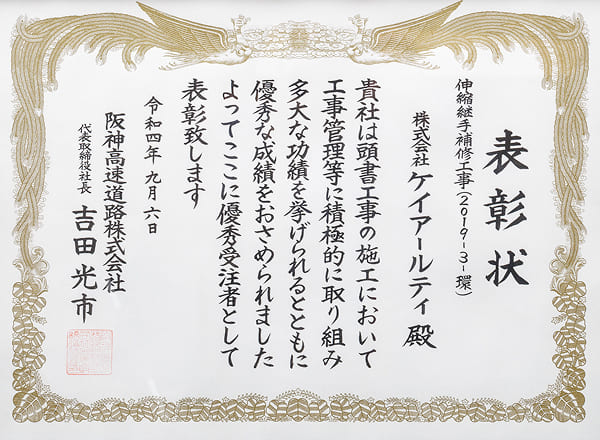 表彰状
伸縮継手補修工事(2019-3-環)
株式会社ケイアールティ 殿
貴社は頭書工事の施工において
工事管理等に積極的に取り組み
多大な功績を挙げられるとともに
優秀な成績をおさめられました
よってここに優秀受注者として
表彰致します
令和四年九月六日
阪神高速道路株式会社
代表取締役社長 吉田光市